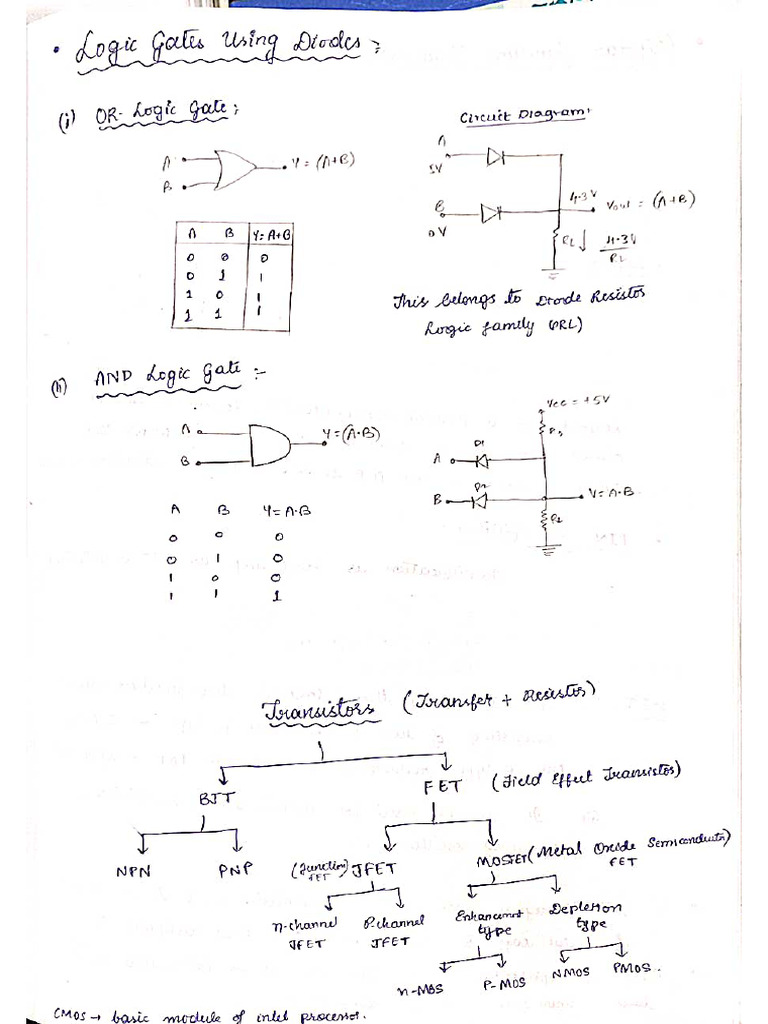 • Logic Gates Using Diodes :
(i) OR- Logic Gate :
Circuit Diagram :
A
B
Y = (A+B)
A
5V
B
0V
4.3V
Vout = (A+B)
RL ↓ 4.3V
RL
A B Y= A+B
0 0 0
0 1 1
1 0 1
1 1 1
This belongs to Diode Resistor
Logic family (DRL)
(ii) AND Logic Gate :-
A
B
Y=(A·B)
Vcc = +5V
D1
A
D2
B
V= A·B
R2
A B Y= A·B
0 0 0
0 1 0
1 0 0
1 1 1
Transistors (Transfer + Resistor)
BJT
FET (Field Effect Transistor)
NPN PNP
(Junction FET) JFET
MOSFET (Metal Oxide Semiconductor) FET
n-channel JFET
P-channel JFET
Enhancement type
Depletion type
n-MOS P-MOS NMOS PMOS.
CMOS → basic module of intel processor.